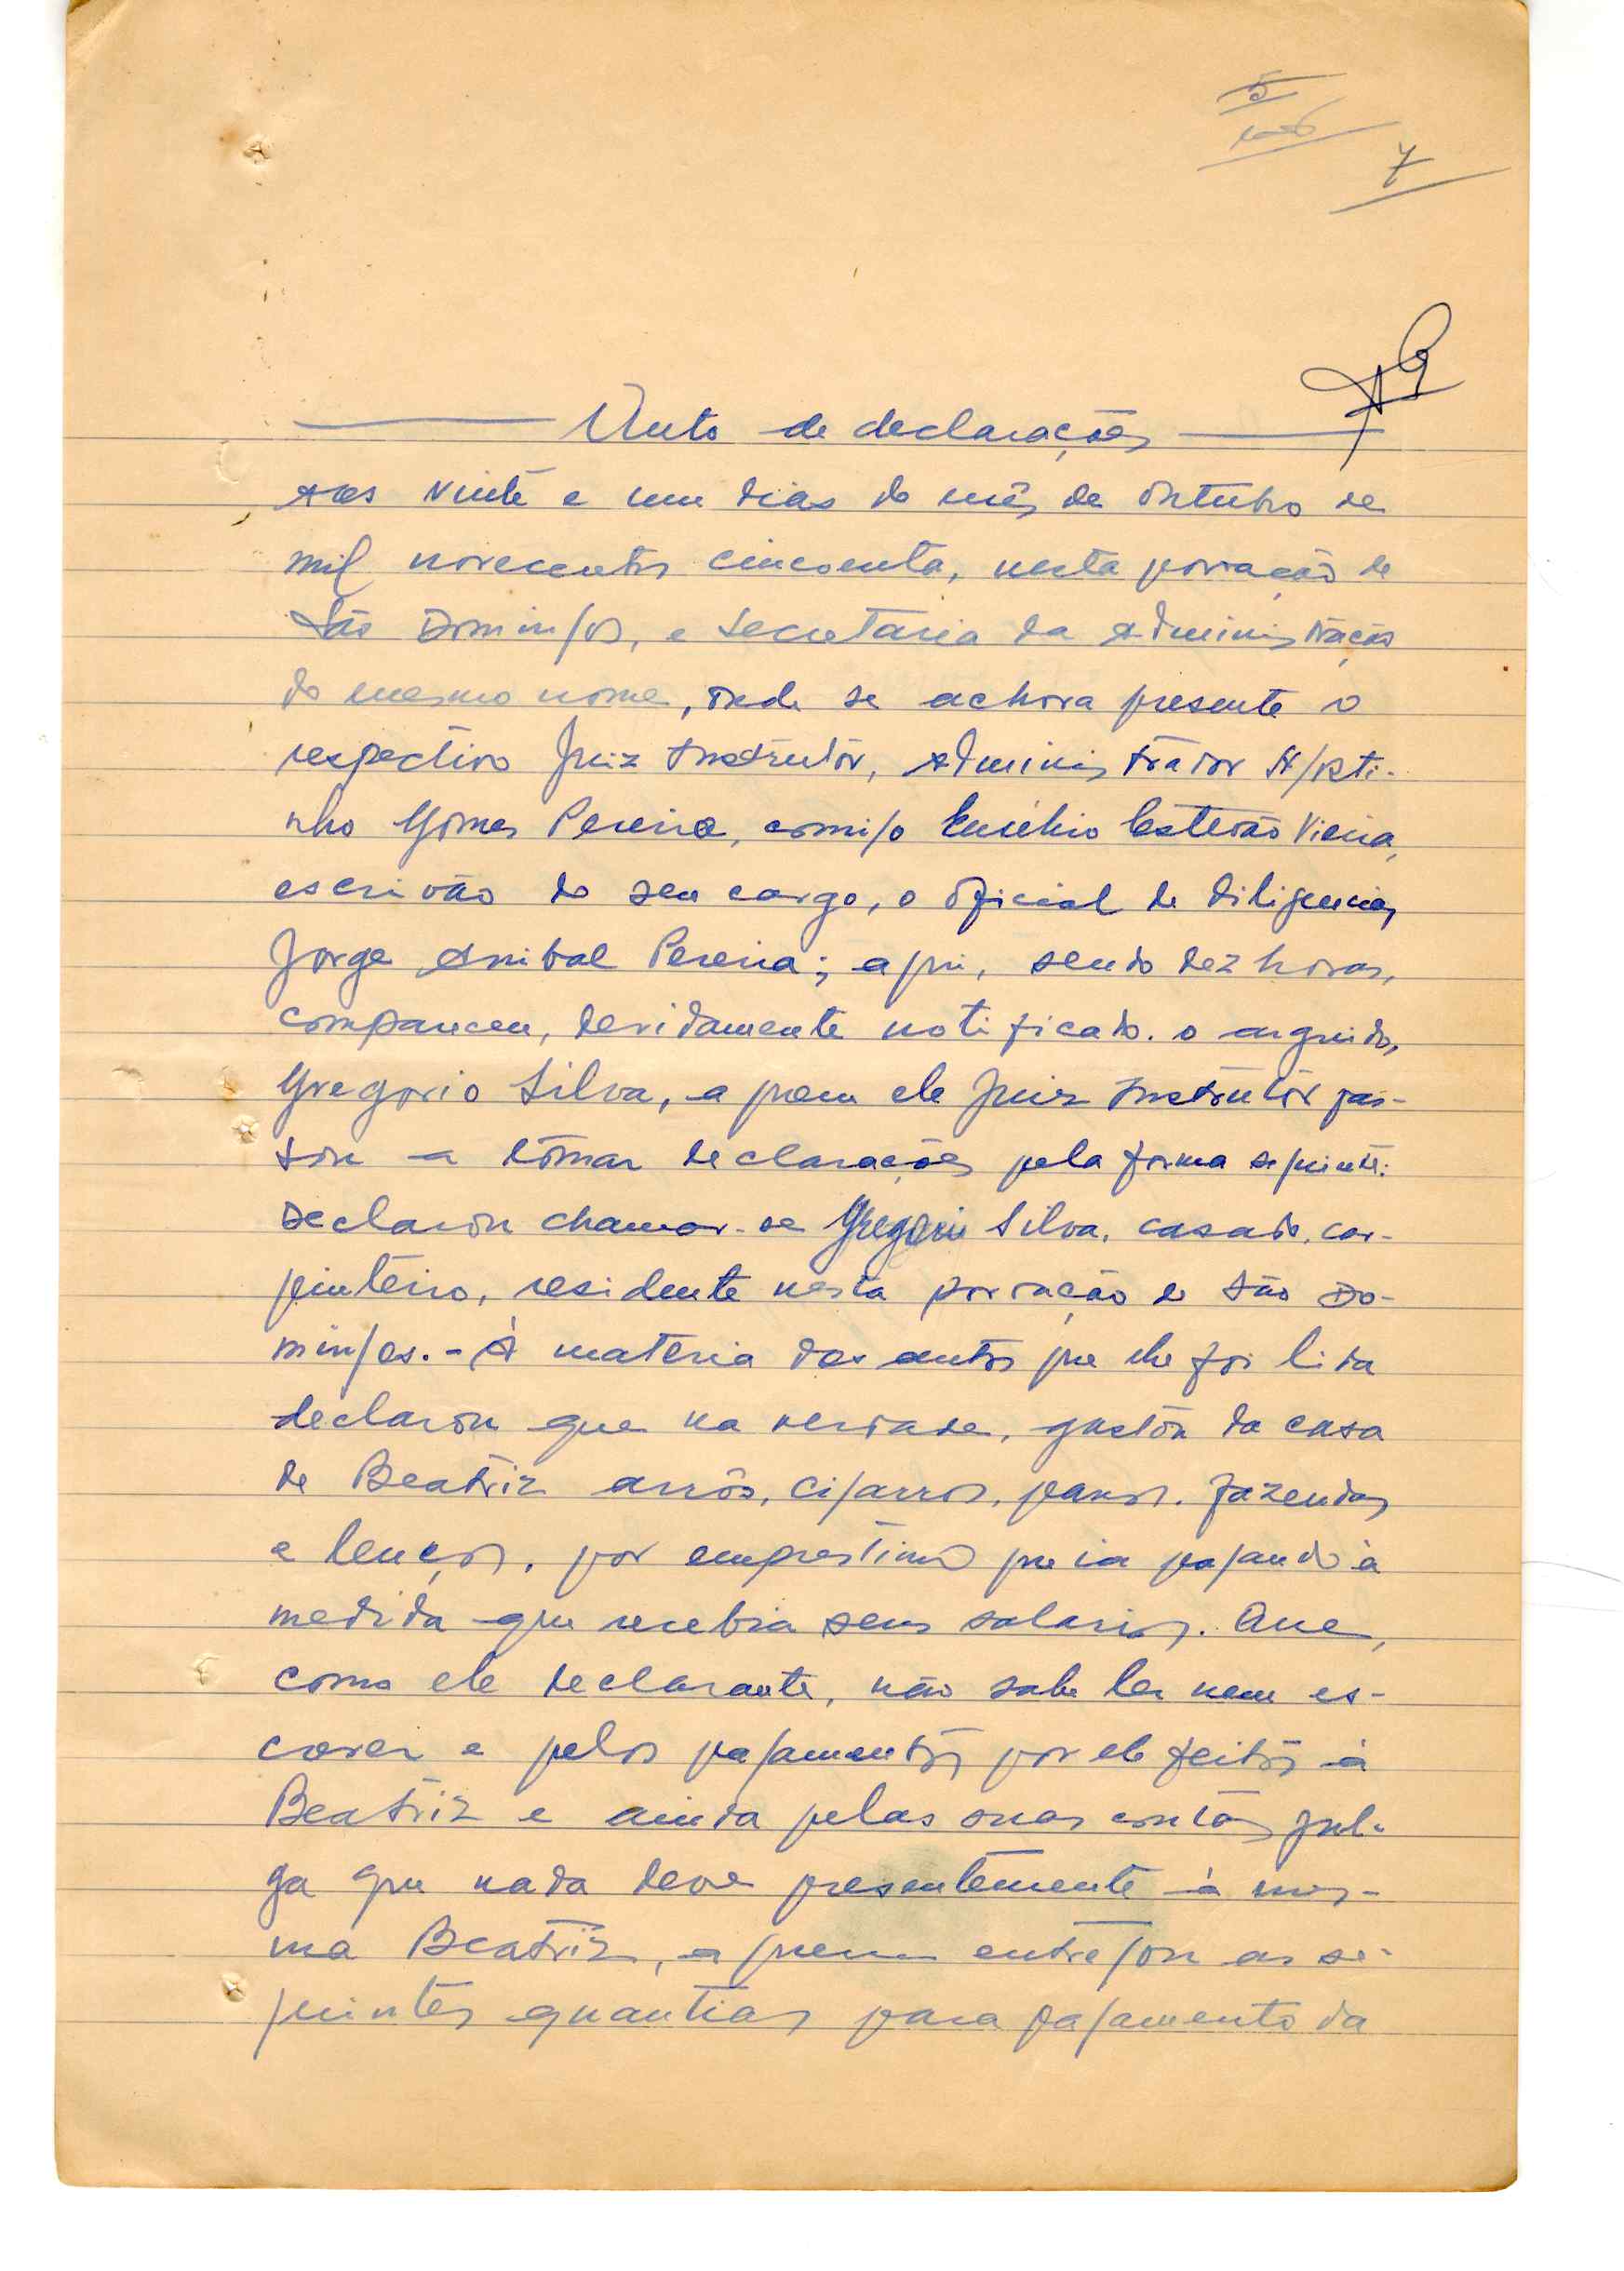 5
7
Auto de declarações
Aos vinte e um dias do mês de Outubro de
mil novecentos cincoenta, nesta povoação de
São Domingos, e Secretaria da Administração
do mesmo nome, onde se achava presente o
respectivo Juiz Instrutôr, Administrador Agosti-
nho Gomes Pereira, comigo Eusébio Estevão Vieira,
escrivão do seu cargo, o oficial de diligencias
Jorge Anibal Pereira; aqui, sendo dez horas,
compareceu, devidamente notificado. o arguido,
Gregorio Silva, a quem ele Juiz Instrutôr pas-
sou a tômar declarações pela forma seguinte:
Declarou chamar-se Gregorio Silva, casado, car-
pinteiro, residente nesta povoação de São Do-
mingos. - Á materia dos autos que lhe foi lida
declarou que na verdade, gastou da casa
de Beatriz arrôs, cigarros, panos. fazendas
e lenços, por emprestimo que ia pagando à
medida que recebia seus salarios. Que,
como ele declarante, não sabe ler nem es-
crever e pelos pagamentos por ele feitos à
Beatriz e ainda pelas suas contas jul-
ga que nada deve presentemente à mes-
ma Beatriz, a quem entregou as se-
guintes quantias para pagamento da